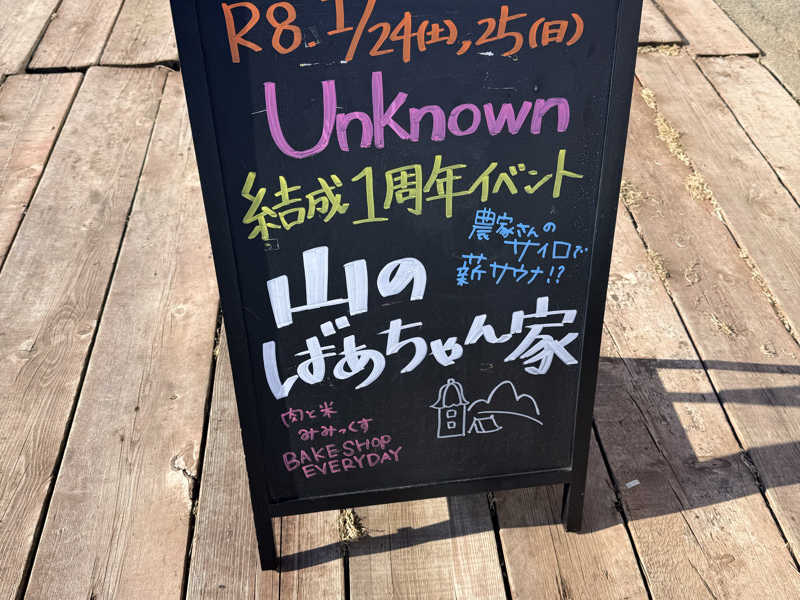 R8.1/24(土),25(日)
Unknown
結成1周年イベント
農家さんの
サイロで
薪サウナ!?
山の
ばあちゃん家
肉と米
みみっくす
BAKE SHOP
EVERYDAY